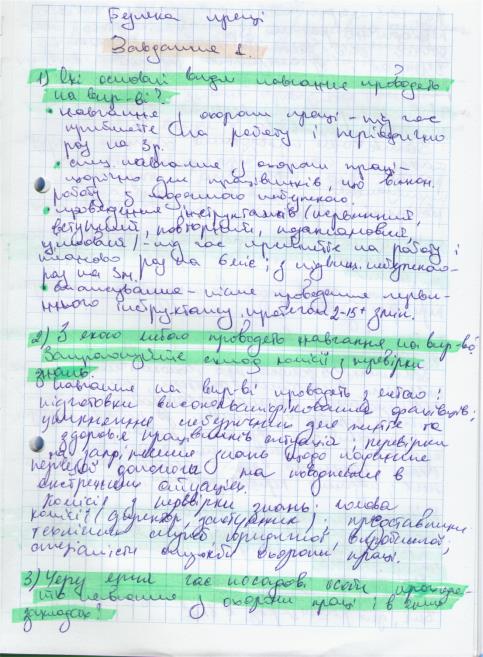 Безпека праці
Завдання 1.
1) Які основні види навчання проводять
на вир-ві?
• навчання з охорони праці – під час
прийняття на роботу і періодично
раз на 3р.
• спец. навчання з охорони праці –
щорічно для працівників, що викон.
роботу з
• проведення інструктажів (первинний,
вступний, повторний, позаплановий,
цільовий) – під час прийняття на роботу і
планово раз на 6 міс; з підвищ. небезпекою –
раз на 3м.
• стажування – після проведення перви-
нного інструктажу протягом 2-15 змін.
2) З якою метою проводять навчання на вир-ві.
склад комісії з перевірки
знань.
Навчання на вир-ві проводять з метою:
підготовки висококваліфікованих фахівців;
уникнення небезпечних для життя та
здоров'я працівників ситуацій; перевірки
знань щодо надання
першої допомоги та поводження в
екстрених ситуаціях.
Комісія з перевірки знань: голова
комісії (директор, заступник); представники
технічної служби, юридичної, виробничої;
спеціалісти служби охорони праці.
3) Через який час посадові особи проходя-
ть навчання з охорони праці і в яких
закладах?